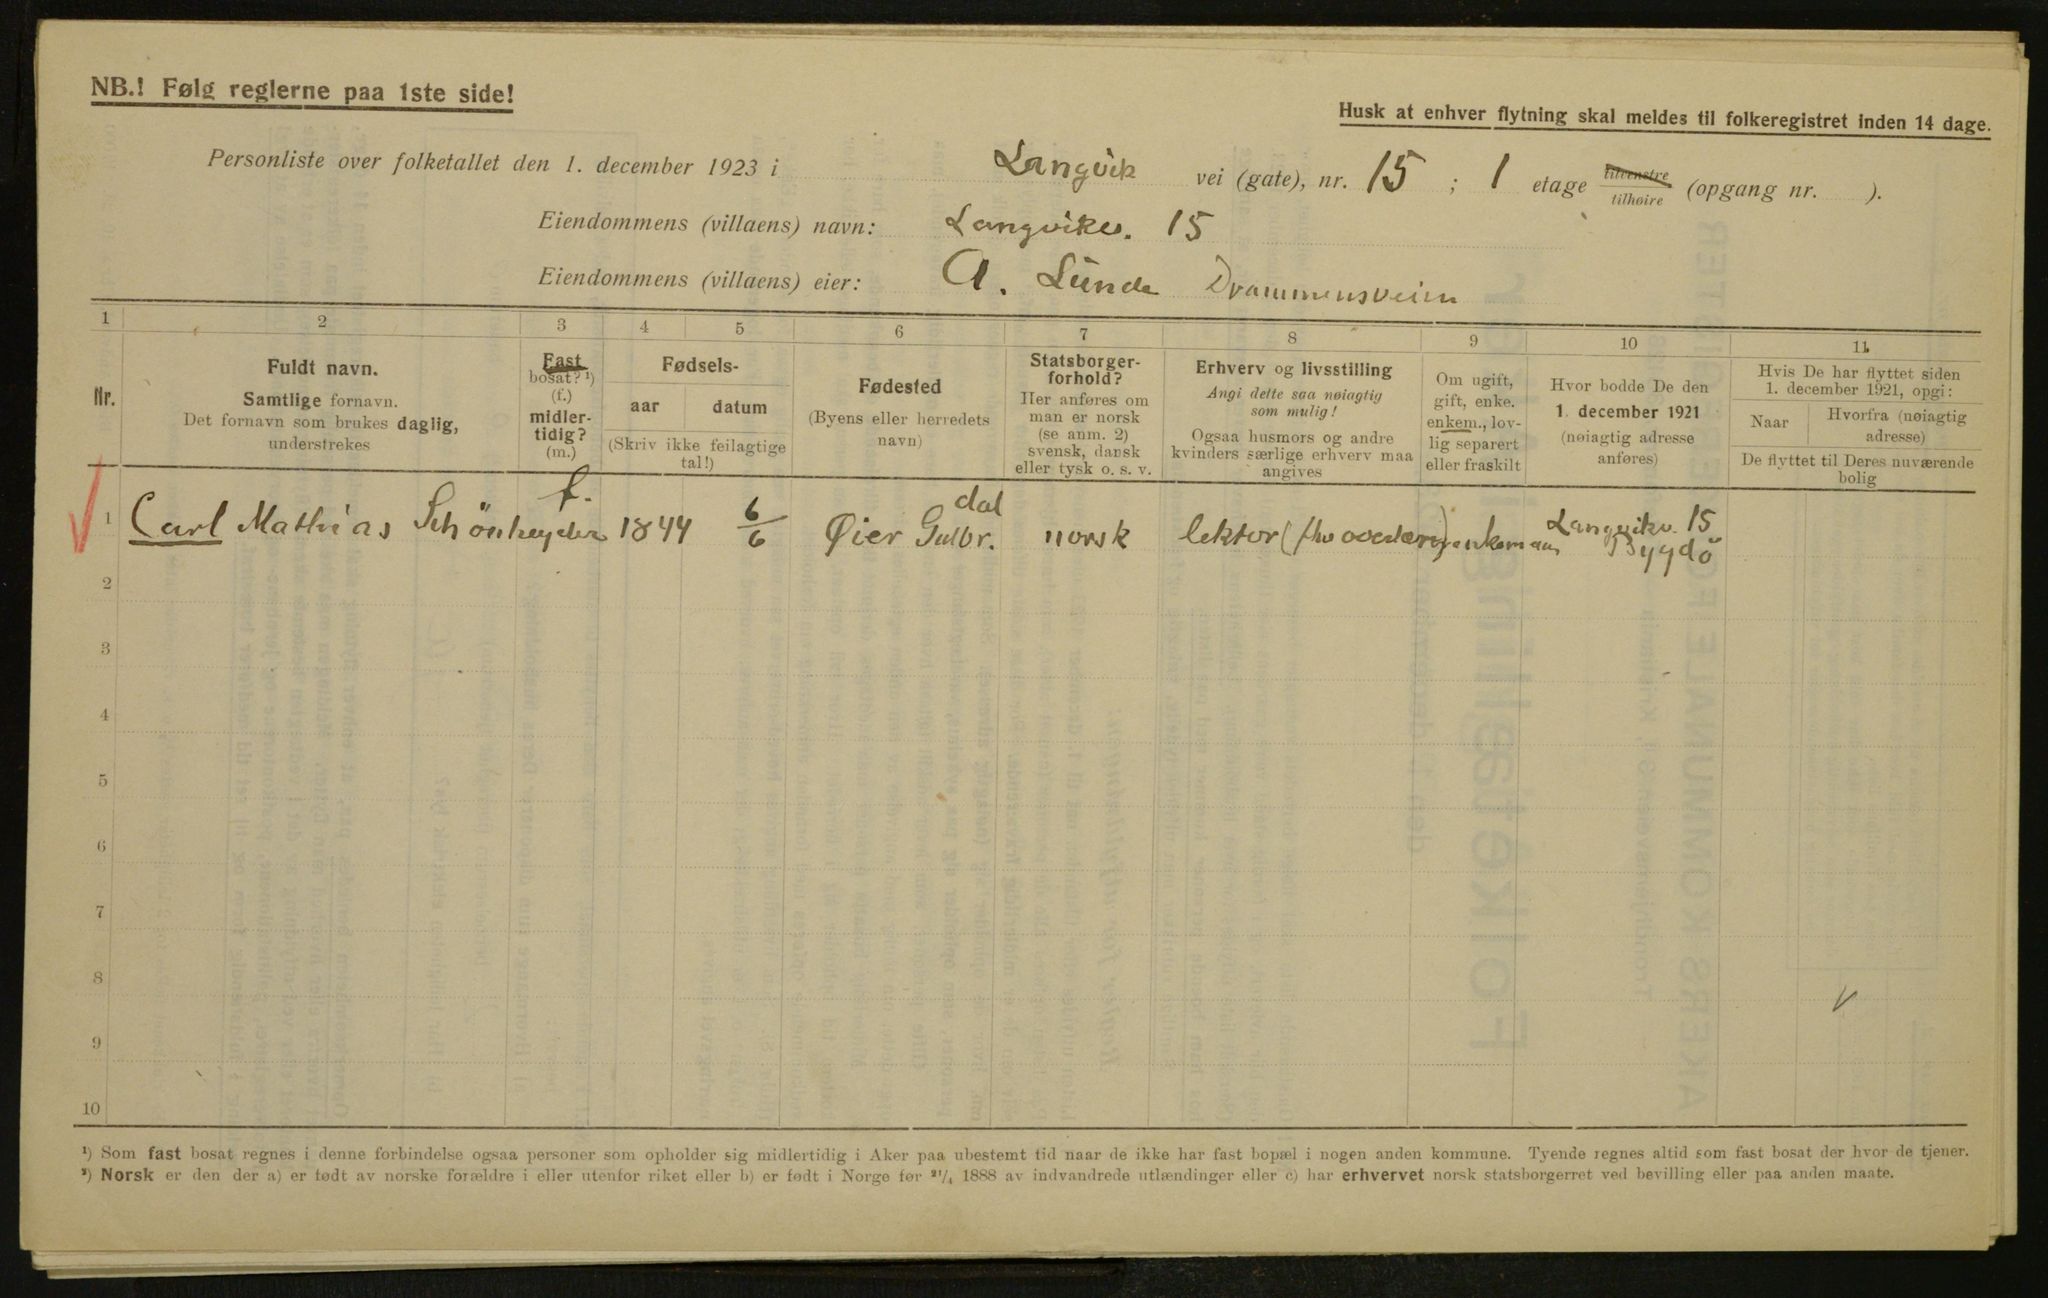 NB.! Følg reglerne paa 1ste side!
Husk at enhver flytning skal meldes til folkeregistret inden 14 dage.
Personliste over folketallet den 1. december 1923 i Langvik vei (gate), nr. 15 ; 1 etage tilvenstre tilhøire (opgang nr. ).
Eiendommens (villaens) navn: Langvikv. 15
Eiendommens (villaens) eier: A. Lunde Drammensveien
1 2 3 4 5 6 7 8 9 10 11
Nr.
Fuldt navn.
Samtlige fornavn.
Det fornavn som brukes daglig,
understrekes
Fast
bosat? ¹)
(f.)
midler-
tidig?
(m.)
Fødsels-
aar datum
(Skriv ikke feilagtige
tal!)
Fødested
(Byens eller herredets
navn)
Statsborger-
forhold?
Her anføres om
man er norsk
(se anm. 2)
svensk, dansk
eller tysk o. s. v.
Erhverv og livsstilling
Angi dette saa nøiagtig
som mulig!
Ogsaa husmors og andre
kvinders særlige erhverv maa
angives
Om ugift,
gift, enke.
enkem., lov-
lig separert
eller fraskilt
Hvor bodde De den
1. december 1921
(nøiagtig adresse
anføres)
Hvis De har flyttet siden
1. december 1921, opgi:
Naar Hvorfra (nøiagtig
adresse)
De flyttet til Deres nuværende
bolig
1 Carl Mathias Schönheyder f. 1844 6/6 Øier Gulbr.dal norsk lektor ( enkeman Langvikv. 15
Bygdö
2
3
4
5
6
7
8
9
10
¹) Som fast bosat regnes i denne forbindelse ogsaa personer som opholder sig midlertidig i Aker paa ubestemt tid naar de ikke har fast bopæl i nogen anden kommune. Tyende regnes altid som fast bosat der hvor de tjener.
²) Norsk er den der a) er født av norske forældre i eller utenfor riket eller b) er født i Norge før 21/4 1888 av indvandrede utlændinger eller c) har erhvervet norsk statsborgerret ved bevilling eller paa anden maate.